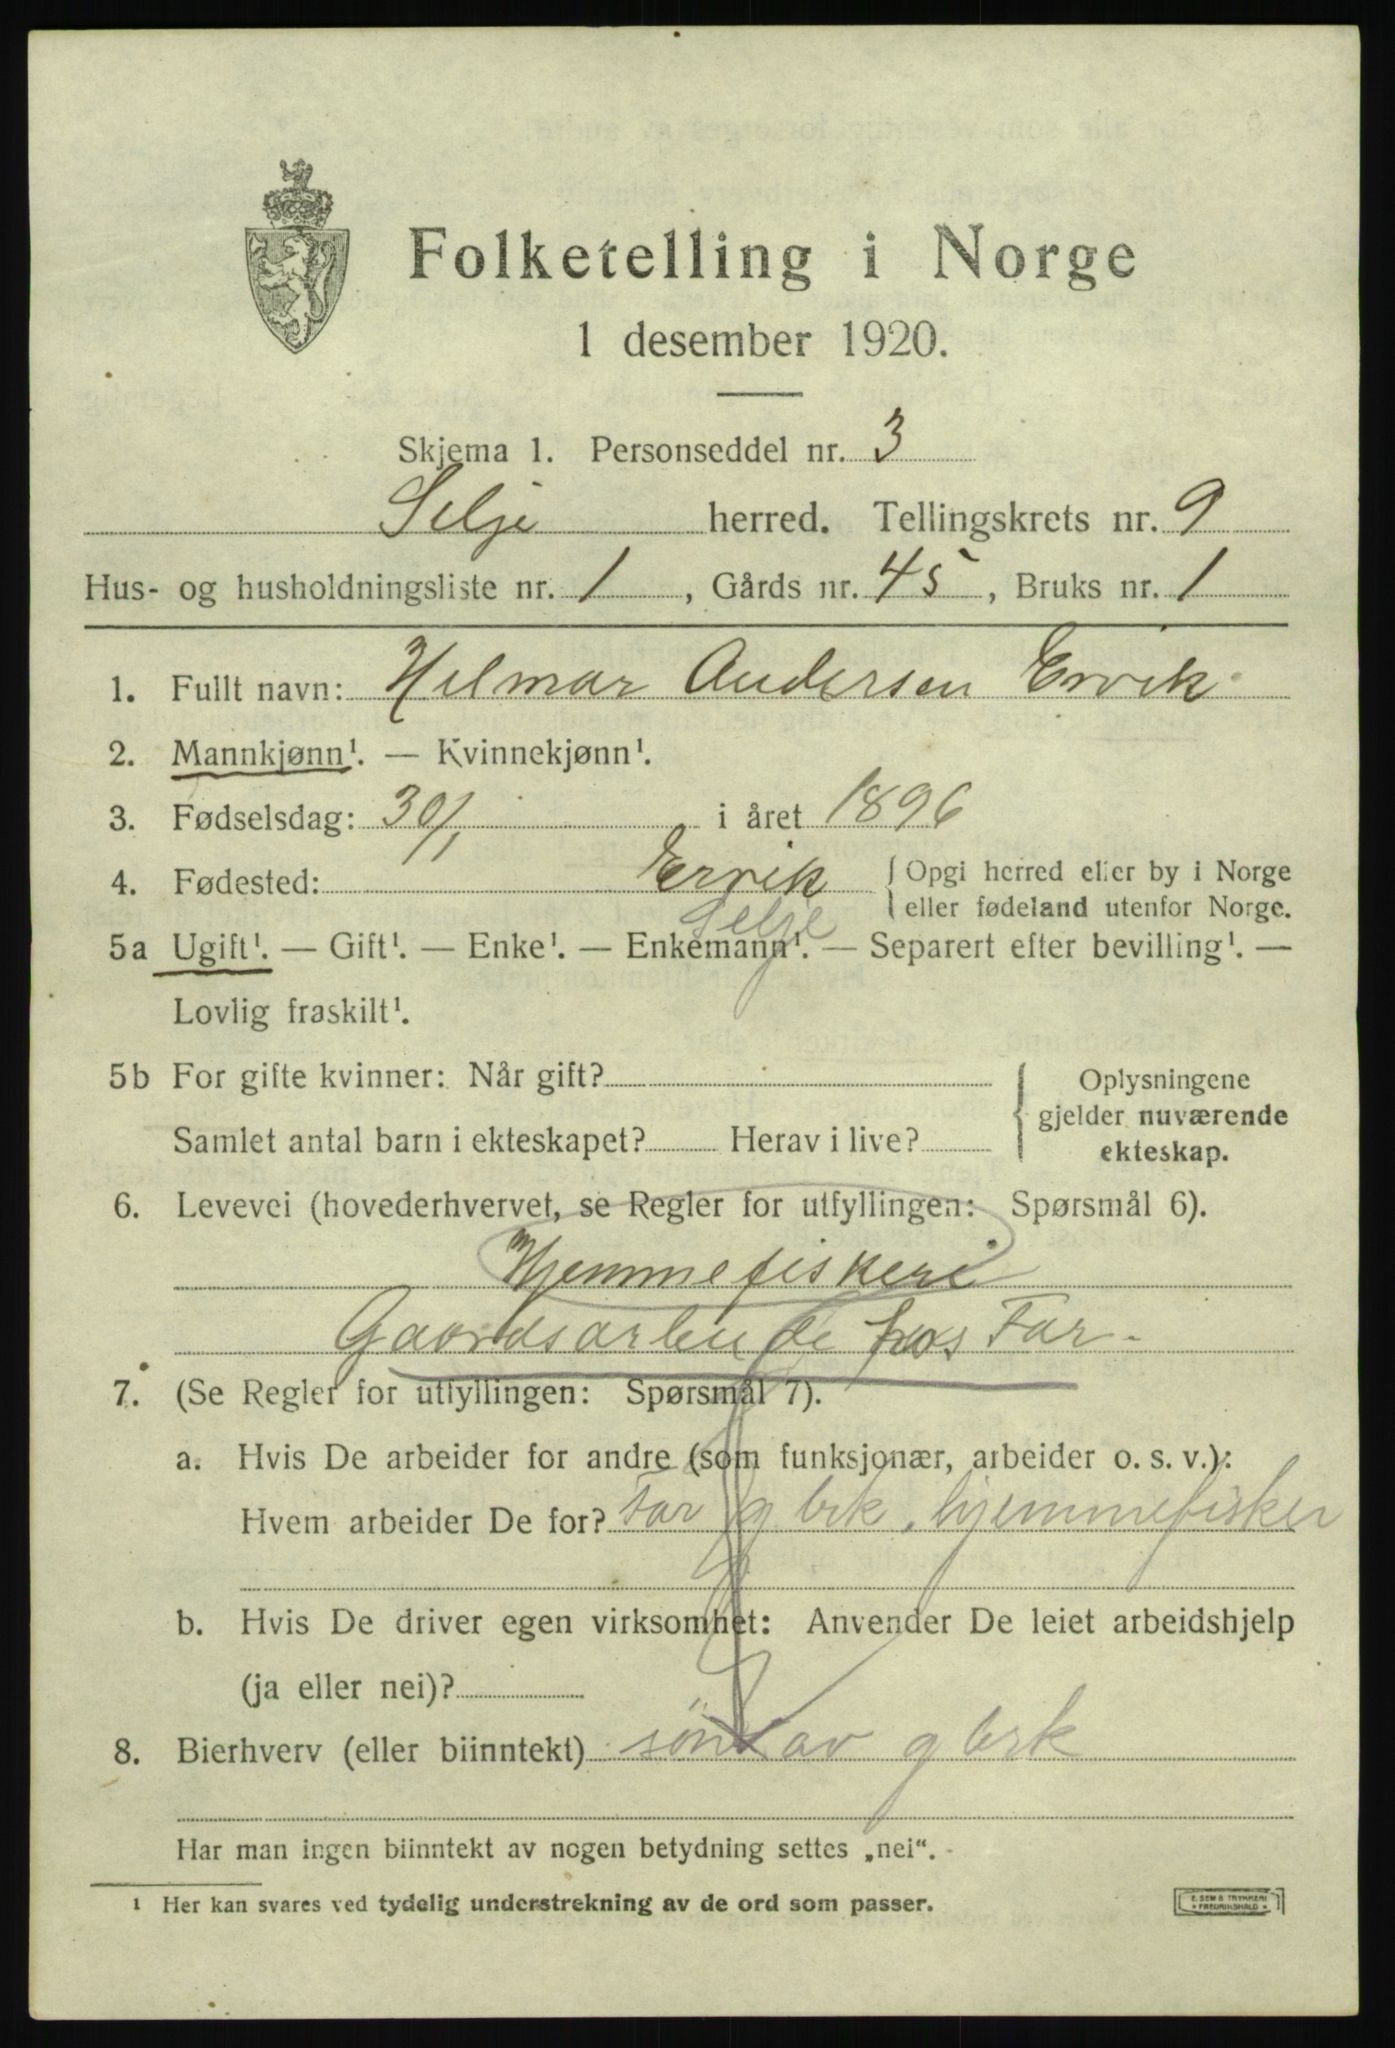 Folketelling i Norge
1 desember 1920.
Skjema 1. Personseddel nr. 3
Selje herred. Tellingskrets nr. 9
Hus- og husholdningsliste nr. 1, Gårds nr. 45, Bruks nr. 1
1. Fullt navn: Hilmar Andersen Ervik
2. Mannkjønn¹. — Kvinnekjønn¹.
3. Fødselsdag: 30/1 i året 1896
4. Fødested: Ervik { Opgi herred eller by i Norge
eller fødeland utenfor Norge.
Selje
5a Ugift¹. — Gift¹. — Enke¹. — Enkemann¹. — Separert efter bevilling¹. —
Lovlig fraskilt¹.
5b For gifte kvinner: Når gift?
Samlet antal barn i ekteskapet? Herav i live?
{ Oplysningene
gjelder nuværende
ekteskap.
6. Levevei (hovederhvervet, se Regler for utfyllingen: Spørsmål 6).
Hjemmefiskeri
Gaardsarbeide hos Far.
7. (Se Regler for utfyllingen: Spørsmål 7).
a. Hvis De arbeider for andre (som funksjonær, arbeider o. s. v.):
Hvem arbeider De for? Far g brk. hjemmefisker
b. Hvis De driver egen virksomhet: Anvender De leiet arbeidshjelp
(ja eller nei)?
8. Bierhverv (eller biinntekt) søn av g brk
Har man ingen biinntekt av nogen betydning settes „nei“.
¹ Her kan svares ved tydelig understrekning av de ord som passer.
E. SEM'S TRYKKERI
FREDRIKSHALD